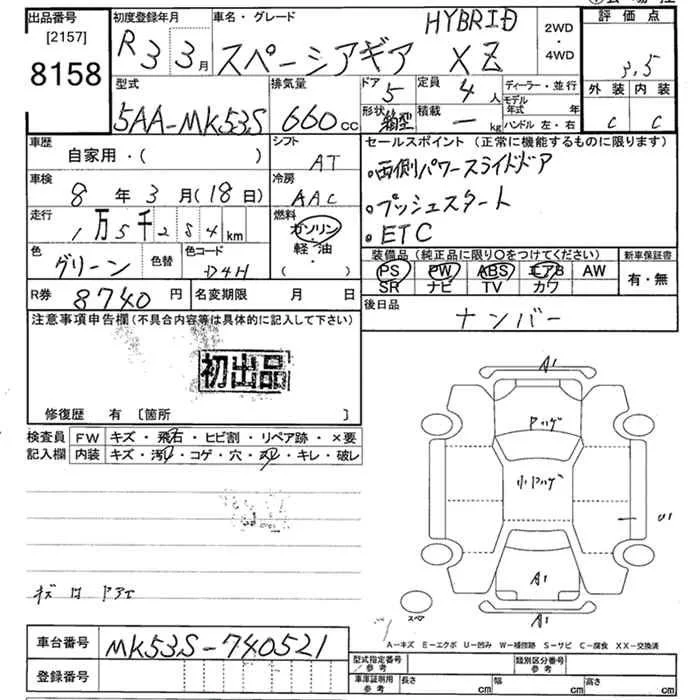 出品番号
[2157]
8158
初度登録年月
R3 3月
車名・グレード
スペーシアギア HYBRID XZ
2WD
・
4WD
評価点
3.5
外装 内装
C C
型式
5AA-MK53S
排気量
660 cc
ドア 5
形状 箱型
定員 4 人
積載 — kg
ディーラー・並行
モデル年式 年
ハンドル 左・右
車歴
自家用・( )
シフト
AT
車検
8 年 3 月 (18 日)
冷房
AAC
走行
1万5千284 km
燃料
ガソリン
軽・油
( ・ )
色
グリーン
色替
色コード
D4H
R券 8740 円
名変期限 月 日
セールスポイント (正常に機能するものに限ります)
・両側パワースライドドア
・プッシュスタート
・ETC
装備品 (純正品に限り○をつけてください)
PS PW ABS エアB AW
SR ナビ TV カワ
新車保証書
有・無
後日品
ナンバー
注意事項申告欄 (不具合内容等は具体的に記入して下さい)
初出品
修復歴 有 〔箇所 〕
検査員
記入欄
FW キズ・飛石・ヒビ割・リペア跡・×要
内装 キズ・汚レ・コゲ・穴・スレ・キレ・破レ
A1
A1
A1
U1
スペア
車台番号
MK53S-740521
登録番号
A−キズ E−エクボ U−凹み W−補修跡 S−サビ C−腐食 XX−交換済
型式指定番号
参考
類別区分番号
参考
車庫証明用
参考
長さ cm
幅 cm
高さ cm